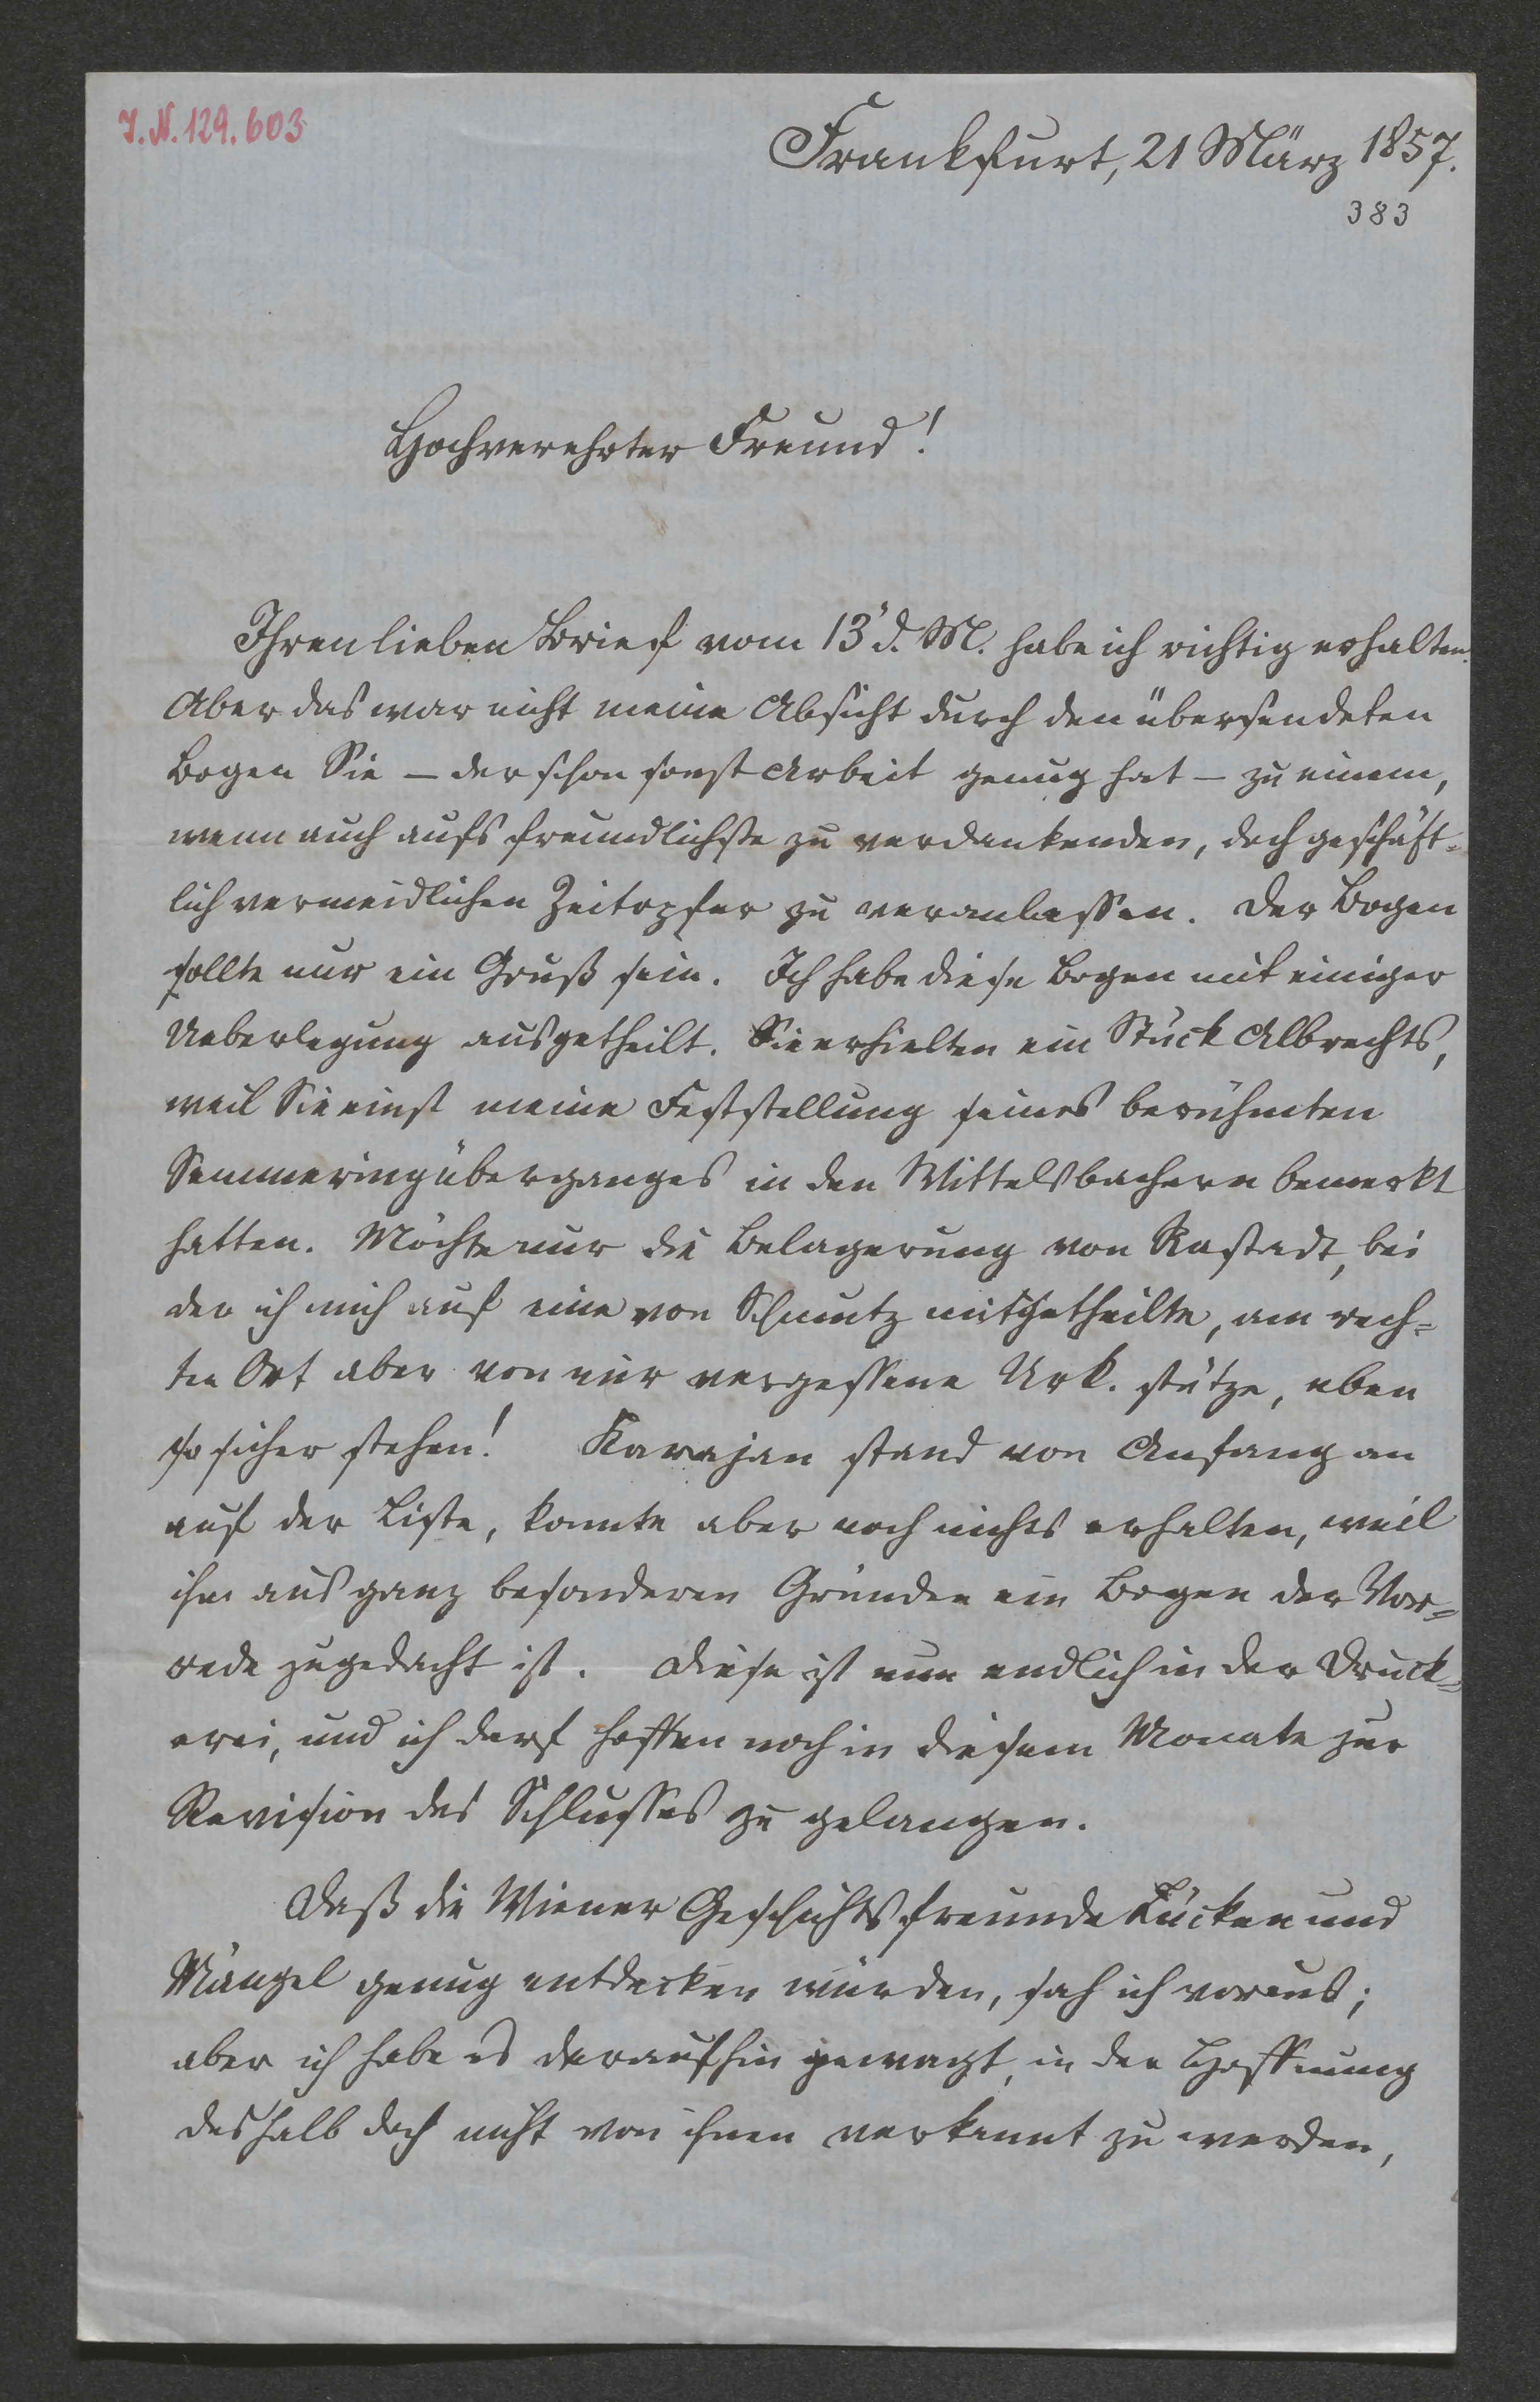 I. N. 129.603
Frankfurt, 21 März 1857.
383
Hochverehrter Freund!
Ihren lieben Brief vom 13 d. M. habe ich richtig erhalten.
Aber das war nicht meine Absicht durch den übersendeten
Bogen Sie – der schon sonst Arbeit genug hat – zu einem,
wenn auch aufs freundlichste zu verdankenden, doch geschäft-
lich vermeidlichen Zeitopfer zu veranlassen. Der Bogen
sollte nur ein Gruß sein. Ich habe diese Bogen mit einiger
Ueberlegung ausgetheilt. Sie erhielten ein Stück Albrechts,
weil Sie einst meine Feststellung seines berühmten
Semmeringüberganges in den Wittelsbachern bemerkt
hatten. Möchte nur die Belagerung von Rastadt, bei
der ich mich auf eine von Schmutz mitgetheilte, am rech-
ten Ort aber von mir vergessene Urk. stütze, eben
so sicher stehen! Karajan stand von Anfang an
auf der Liste, konnte aber noch nichts erhalten, weil
ihm aus ganz besonderen Gründen ein Bogen der Vor-
rede zugedacht ist. Diese ist nun endlich in der Druck-
erei, und ich darf hoffen noch in diesem Monate zur
Revision des Schlusses zu gelangen.
Daß die Wiener Geschichtsfreunde Lücken und
Mängel genug entdecken würden, sah ich voraus;
aber ich habe es daraufhin gewagt, in der Hoffnung
deshalb doch nicht von ihnen verkannt zu werden,